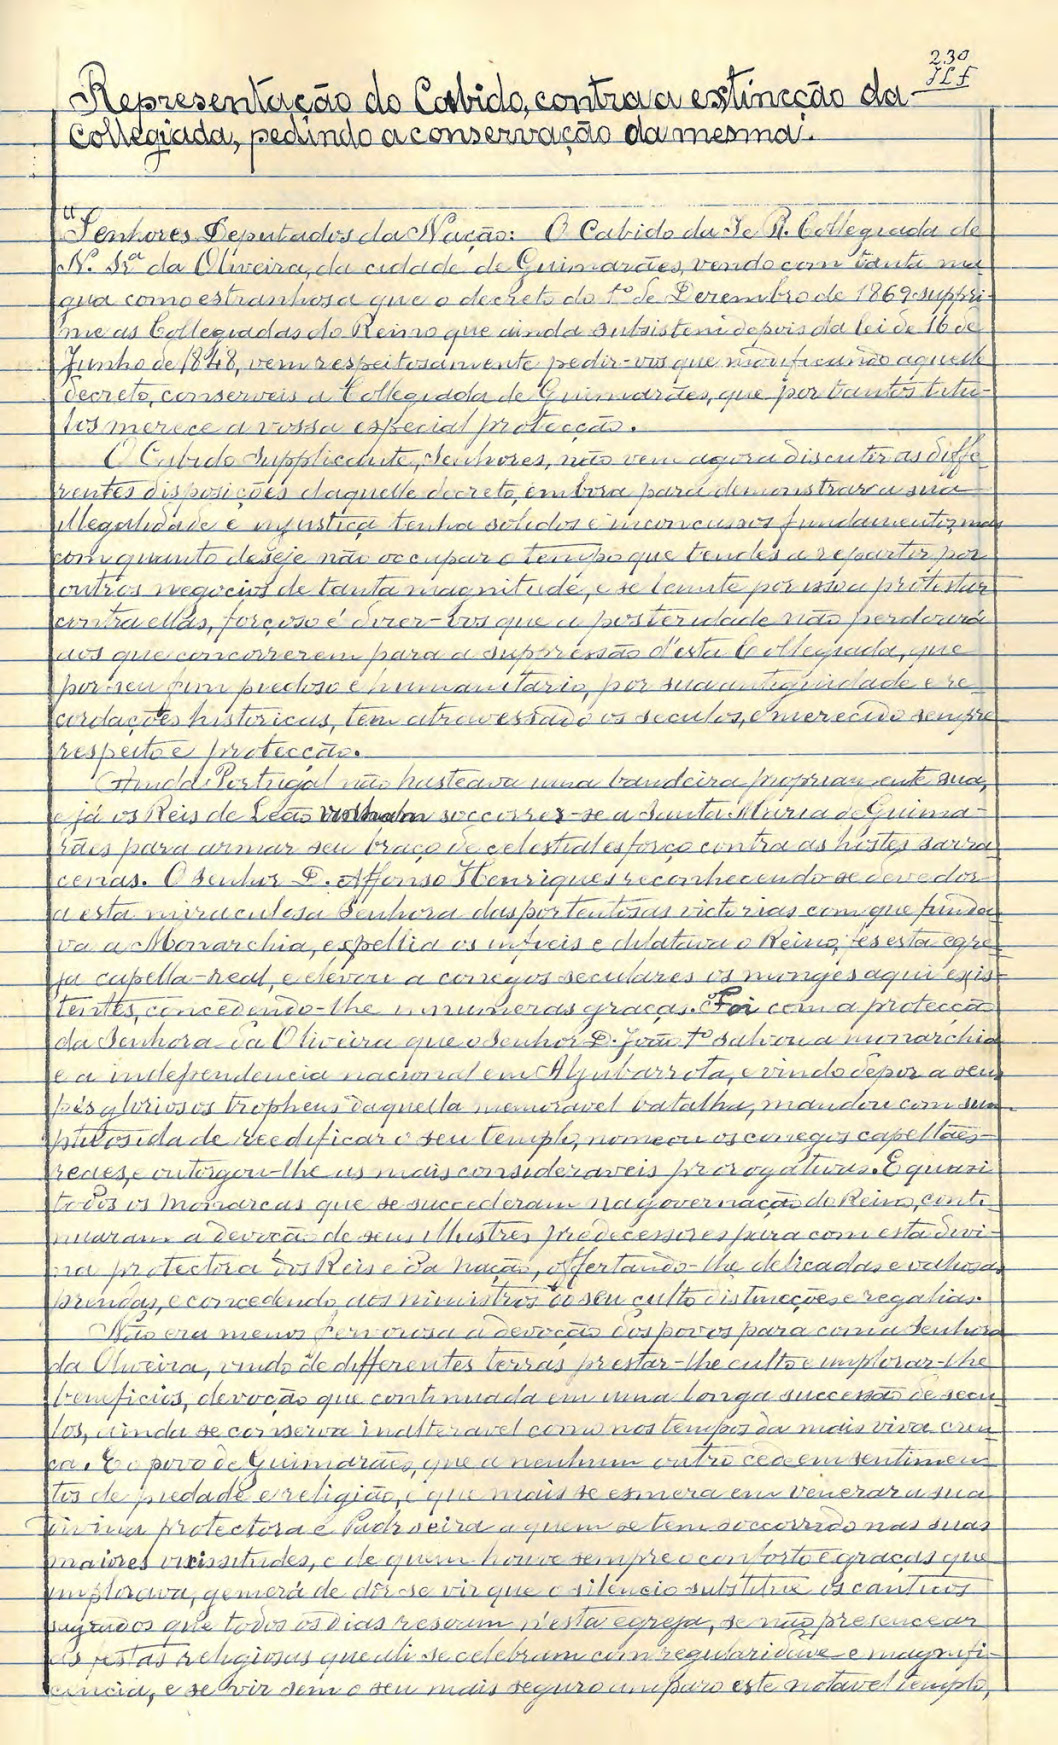 230
JLF
Representação do Cabido, contra a extincção da
Collegiada, pedindo a conservação da mesma.
"Senhores Deputados da Nação: O Cabido da Je R. Collegiada de
N. Sr.ª da Oliveira, da cidade de Guimarães, vendo com tanta ma
gua como estranhesa que o decreto do 1º de Dezembro de 1869 suppri-
me as Collegiadas do Reino que ainda subsistem depois da lei de 16 de
Junho de 1848, vem respeitosamente pedir-vos que modificando aquelle
decreto, conserveis a Collegiada de Guimarães, que por tantos titu-
los merece a vossa especial protecção.
O Cabido supplicante, Senhores, não vem agora discutir as diffe
rentes disposições daquelle decreto, embora para demonstrar a sua
illegalidade e injustiça tenha solidos e inconcussos fundamentos, mas
comquanto deseje não occupar o tempo que tendes a repartir por
outros negocios de tanta magnitude, e se limite por isso a protestar
contra ellas, forçoso é dizer-vos que a posteridade não perdoará
aos que concorrerem para a suppressão d'esta Collegiada, que
por seu fim piedoso e humanitario, por sua antiguidade e re-
cordações historicas, tem atravessado os seculos, e merecido sempre
respeito e protecção.
Ainda Portugal não hasteava uma bandeira propriamente sua,
e já os Reis de Leão vinham soccorrer-se a Santa Maria de Guima-
rães para armar seu braço de celestial esforço contra as hostes sarra
cenas. O senhor D. Affonso Henriques reconhecendo-se devedor
a esta miraculosa Senhora das portentosas victorias com que funda
va a Monarchia, expellia os infieis e dilatava o Reino, fes esta egre
ja capella-real, e elevou a conegos seculares os monges aqui exis-
tentes, concedendo-lhe innumeras graças. Foi com a protecção
da Senhora da Oliveira que o Senhor D. João 1º salvou a monarchia
e a independencia nacional em Aljubarrota, e vindo depor a seus
pés gloriosos tropheus daquella memoravel batalha, mandou com sum
ptuosidade reedificar o seu templo, nomeou os conegos capellães-
reaes, e outorgou-lhe as mais consideraveis prorogativas. E quasi
todos os Monarcas que se succederam na governação do Reino, conti
nuaram a devoção de seus illustres predecessores para com esta divi-
na protectora dos Reis e da Nação, offertando-lhe delicadas e valiosas
prendas, e concedendo, aos ministros do seu culto distincções e regalias.
Não era menos fervorosa a devoção dos povos para com a Senhora
da Oliveira, vindo de differentes terras prestar-lhe culto e implorar-lhe
beneficios, devoção que continuada em uma longa successão de secu
los, ainda se conserva inalteravel como nos tempos da mais viva cren
ça. E o povo de Guimarães, que a nenhum outro cede em sentimen
tos de piedade e religião, e que mais se esmera em venerar a sua
divina protectora e Padroeira a quem se tem soccorrido nas suas
maiores vicissitudes, e de quem houve sempre o conforto e graças que
implorava, gemerá de dôr se vir que o silencio substitue os canticos
sagrados que todos os dias resoam n'esta egreja, se não presencear
as festas religiosas que ali se celebram com regularidade e magnifi-
cencia, e se vir sem o seu mais seguro amparo este notavel templo,